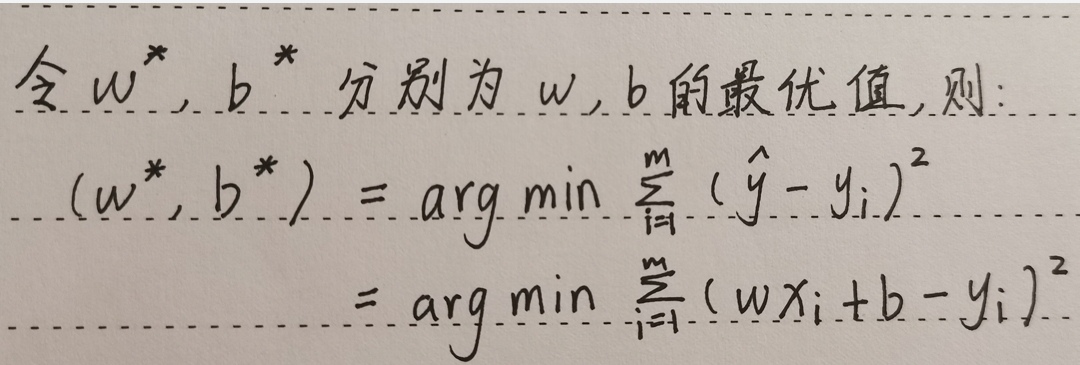 令 w*, b* 分别为 w, b 的最优值, 则:
(w*, b*) = arg min ∑_{i=1}^{m} (ŷ - y_i)²
= arg min ∑_{i=1}^{m} (wx_i + b - y_i)²